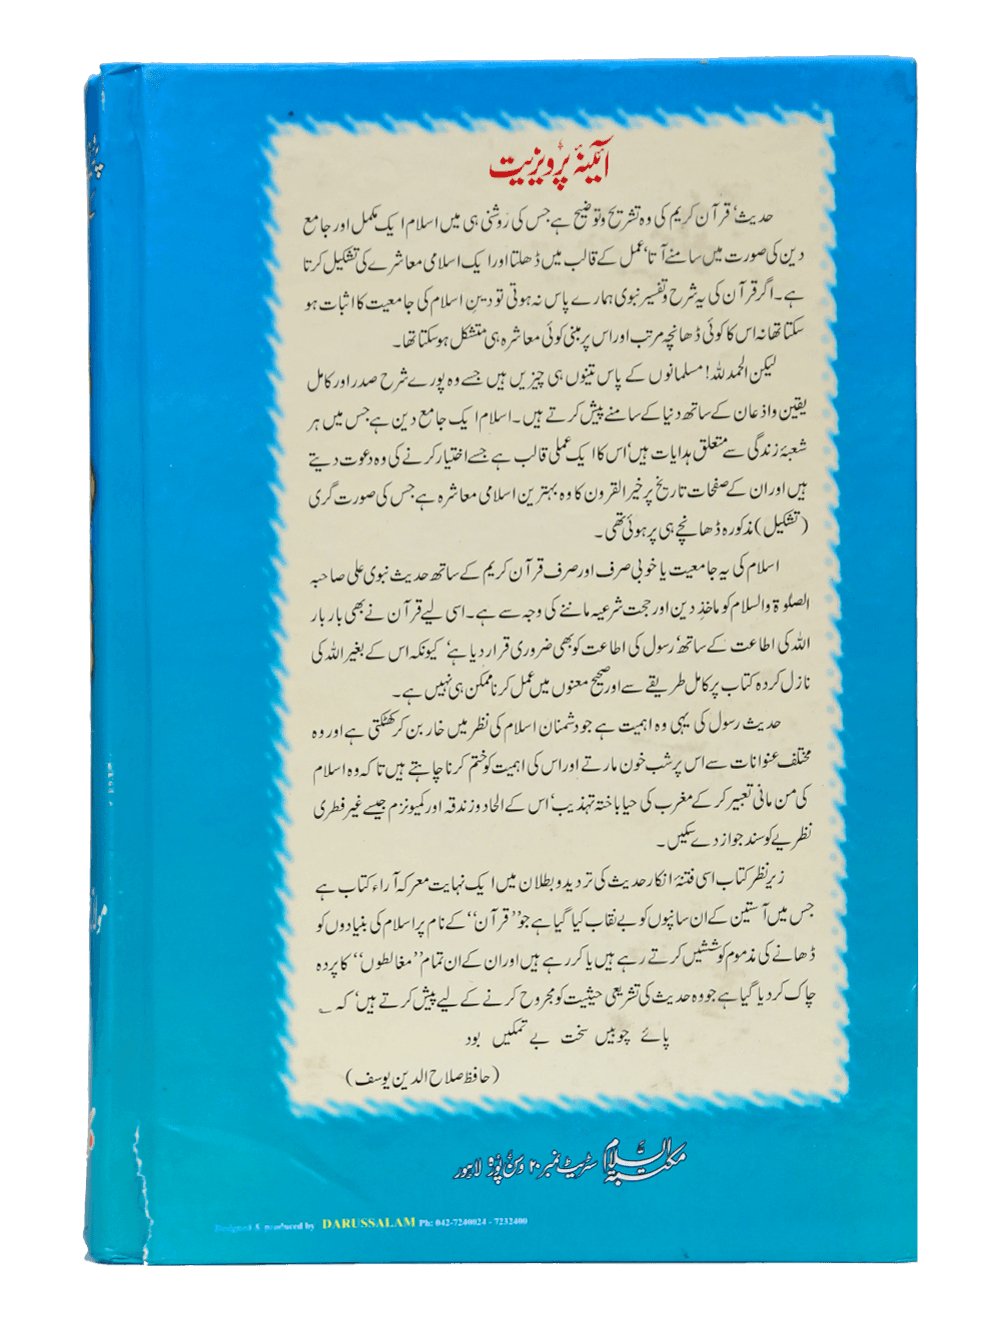 آئینۂ پرویزیت
حدیث‘ قرآن کریم کی وہ تشریح و توضیح ہے جس کی روشنی ہی میں اسلام ایک مکمل اور جامع
دین کی صورت میں سامنے آتا‘ عمل کے قالب میں ڈھلتا اور ایک اسلامی معاشرے کی تشکیل کرتا
ہے۔ اگر قرآن کی یہ شرح و تفسیر نبوی ہمارے پاس نہ ہوتی تو دینِ اسلام کی جامعیت کا اثبات ہو
سکتا تھا نہ اس کا کوئی ڈھانچہ مرتب اور اس پر مبنی کوئی معاشرہ ہی متشکل ہو سکتا تھا۔
لیکن الحمد للہ! مسلمانوں کے پاس تینوں ہی چیزیں ہیں جسے وہ پورے شرح صدر اور کامل
یقین واذعان کے ساتھ دنیا کے سامنے پیش کرتے ہیں۔ اسلام ایک جامع دین ہے جس میں ہر
شعبۂ زندگی سے متعلق ہدایات ہیں‘ اس کا ایک عملی قالب ہے جسے اختیار کرنے کی وہ دعوت دیتے
ہیں اور ان کے صفحات تاریخ پر خیر القرون کا وہ بہترین اسلامی معاشرہ ہے جس کی صورت گری
(تشکیل) مذکورہ ڈھانچے ہی پر ہوئی تھی۔
اسلام کی یہ جامعیت یا خوبی صرف اور صرف قرآن کریم کے ساتھ حدیث نبوی علی صاحبہ
الصلوۃ والسلام کو ماخذِ دین اور حجت شرعیہ ماننے کی وجہ سے ہے۔ اسی لیے قرآن نے بھی بار بار
اللہ کی اطاعت کے ساتھ‘ رسول کی اطاعت کو بھی ضروری قرار دیا ہے‘ کیونکہ اس کے بغیر اللہ کی
نازل کردہ کتاب پر کامل طریقے سے اور صحیح معنوں میں عمل کرنا ممکن ہی نہیں ہے۔
حدیث رسول کی یہی وہ اہمیت ہے جو دشمنان اسلام کی نظر میں خار بن کر کھٹکتی ہے اور وہ
مختلف عنوانات سے اس پر شب خون مارتے اور اس کی اہمیت کو ختم کرنا چاہتے ہیں تا کہ وہ اسلام
کی من مانی تعبیر کر کے مغرب کی حیا باختہ تہذیب‘ اس کے الحاد و زندقہ اور کمیونزم جیسے غیر فطری
نظریے کو سند جواز دے سکیں۔
زیر نظر کتاب اسی فتنۂ انکار حدیث کی تردید و بطلان میں ایک نہایت معرکہ آراء کتاب ہے
جس میں آستین کے ان سانپوں کو بے نقاب کیا گیا ہے جو ’’قرآن‘‘ کے نام پر اسلام کی بنیادوں کو
ڈھانے کی مذموم کوششیں کرتے رہے ہیں یا کر رہے ہیں اور ان کے ان تمام ’’مغالطوں‘‘ کا پردہ
چاک کر دیا گیا ہے جو وہ حدیث کی تشریعی حیثیت کو مجروح کرنے کے لیے پیش کرتے ہیں‘ کہ ؎
پائے چوبیں سخت بے تمکیں بود
(حافظ صلاح الدین یوسف)
مکتبۃ السلام سٹریٹ نمبر ۲۰ وسن پورہ لاہور
Designed & produced by DARUSSALAM Ph: 042-7240024 - 7232400